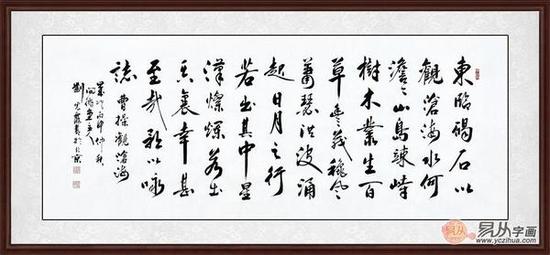 東臨碣石以
觀滄海水何
澹〻山島竦峙
樹木叢生百
草豐茂秋風
蕭瑟洪波涌
起日月之行
若出其中星
漢燦爛若出
其裏幸甚
至哉歌以咏
誌 曹操觀滄海
歲次丙申仲秋
主人
劉光霞書於北京
易从字画
www.yczihua.com